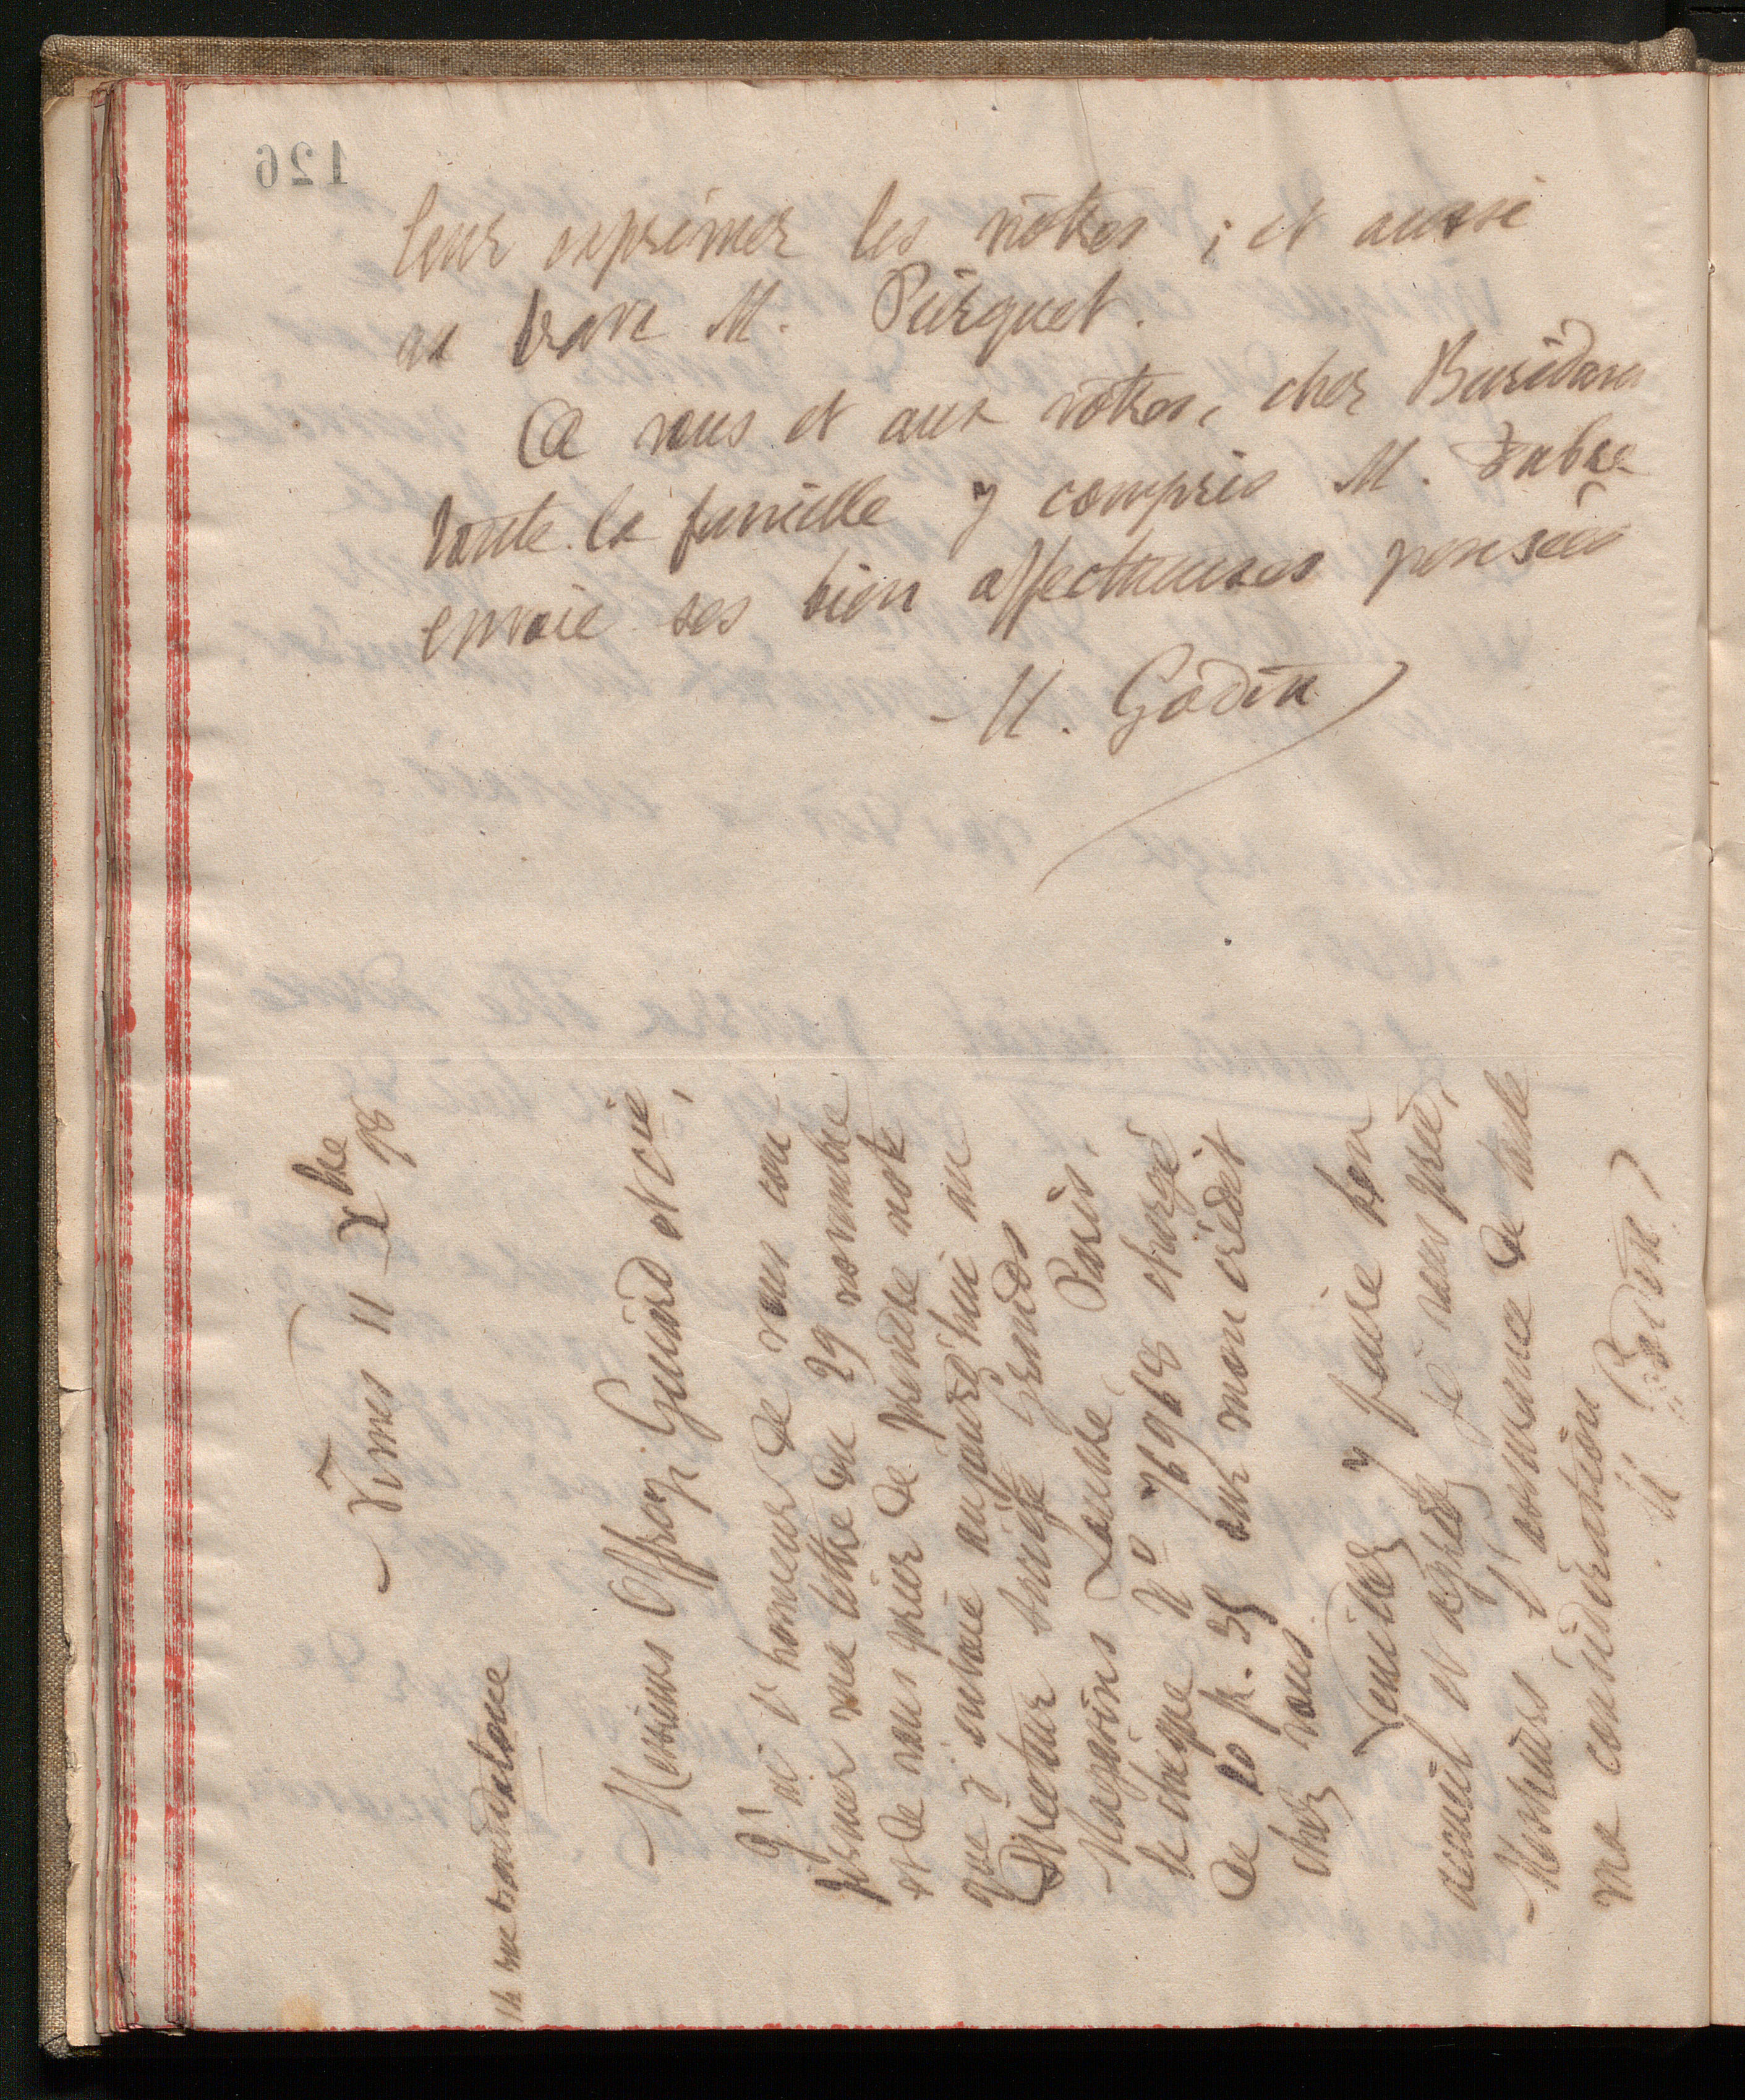 126
leur exprimer les nôtres ; et aussi
au brave M. Pirquet.
A vous et aux vôtres, cher Buridan
toute la famille y compris M. Fabre
envoie ses bien affectueuses pensées
M. Godin
Nîmes 11 Xbre 98
14 rue Bourdaloue
Messieurs Offroy Guiard et Cie,
J'ai l'honneur de vous con
firmer ma lettre du 29 novembre
et de vous prier de prendre note
que j'envoie aujourd'hui au
Directeur société Grands
Magasins Louvre, Paris,
le chèque No 76968 chargé
de 20 f. 35 sur mon crédit
chez vous.
Veuillez y faire bon
accueil et agréez je vous prie,
Messieurs, l'assurance de toute
ma considération
M Godin